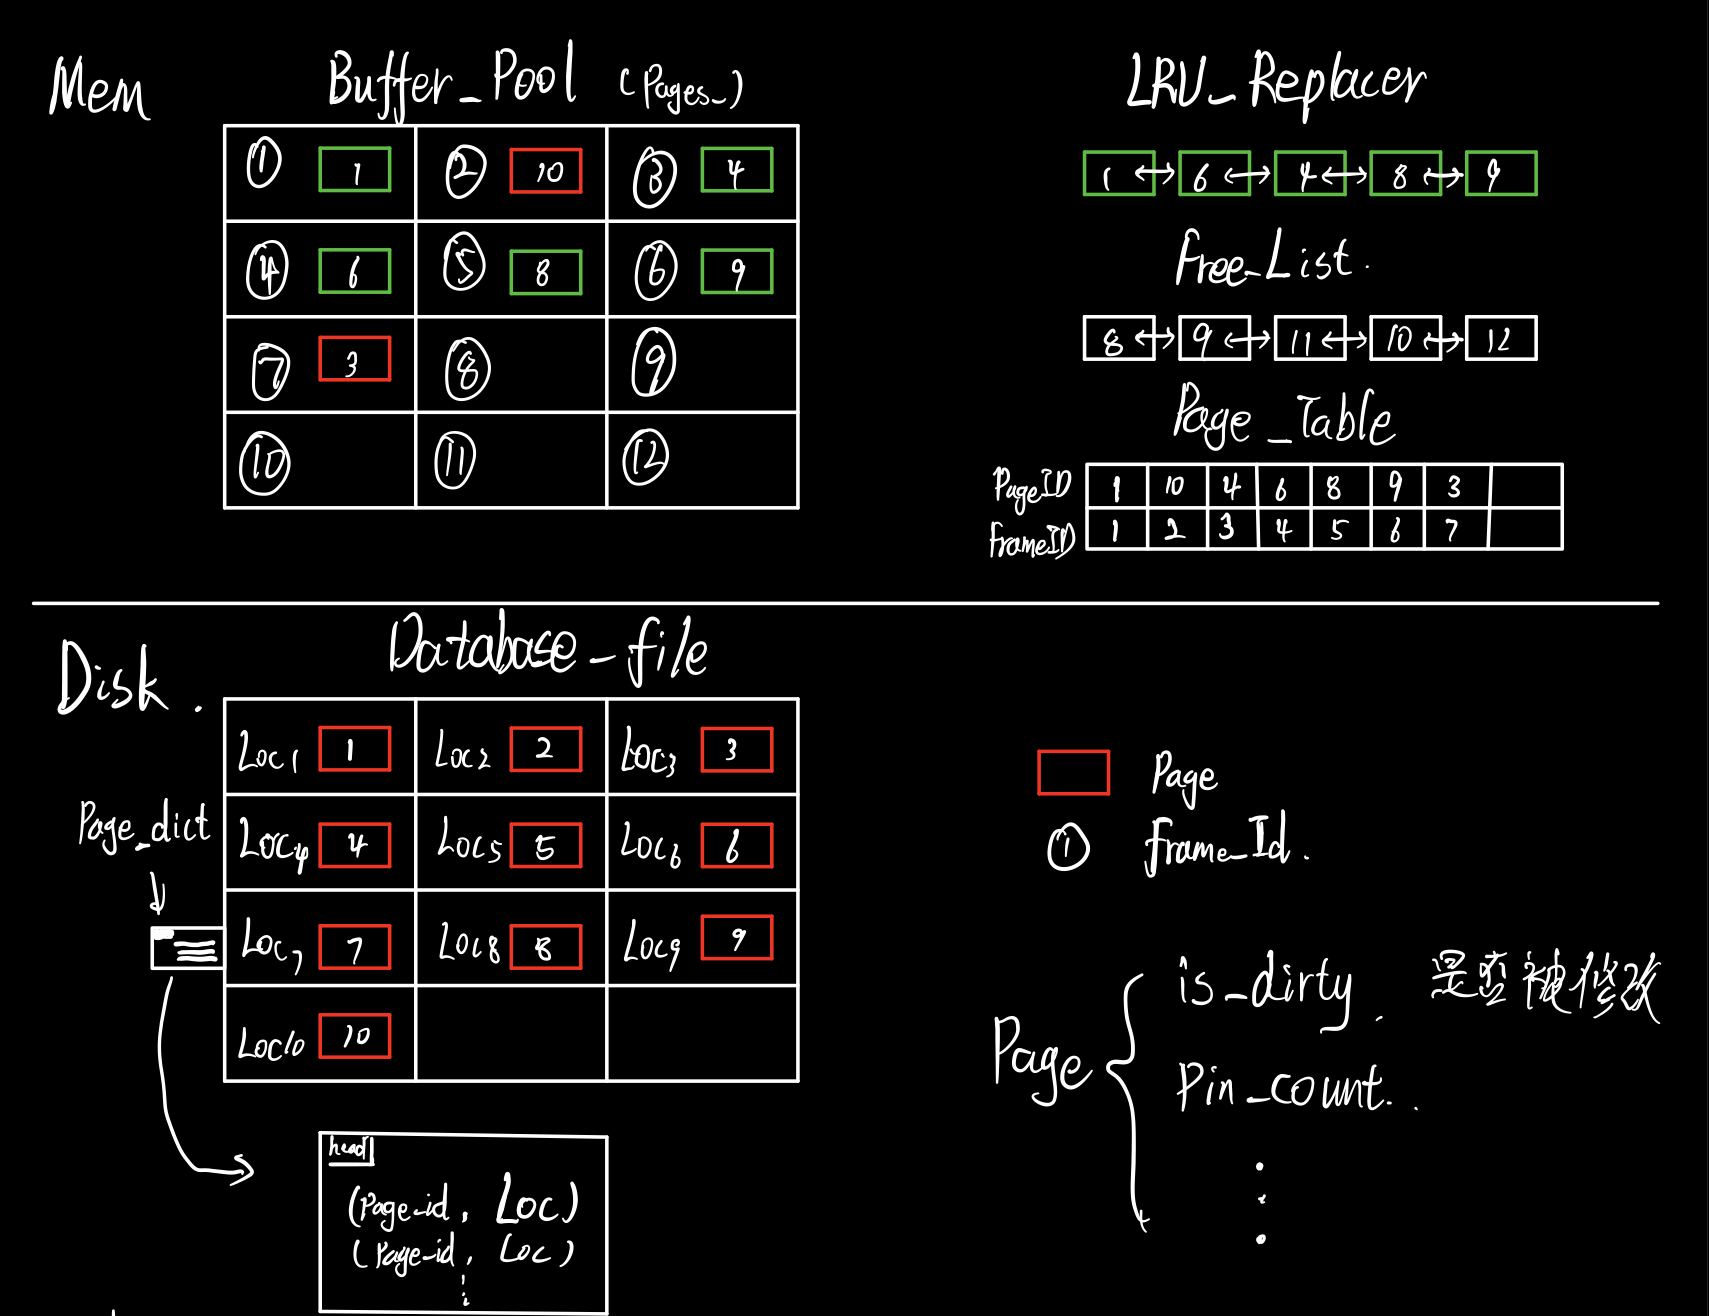 Mem
Buffer_Pool (Pages_)
① 1 ② 10 ③ 4
④ 6 ⑤ 8 ⑥ 9
⑦ 3 ⑧ ⑨
⑩ ⑪ ⑫
LRU_Replacer
1 6 4 8 9
Free_List.
8 9 11 10 12
Page_Table
PageID 1 10 4 6 8 9 3
frameID 1 2 3 4 5 6 7
Disk.
Database_file
Loc1 1 Loc2 2 Loc3 3
Loc4 4 Loc5 5 Loc6 6
Loc7 7 Loc8 8 Loc9 9
Loc10 10
Page_dict
head
(Page_id, Loc)
(Page_id, Loc)
⋮
Page
① frame_Id.
Page
is_dirty. 是否被修改
Pin_count.
⋮